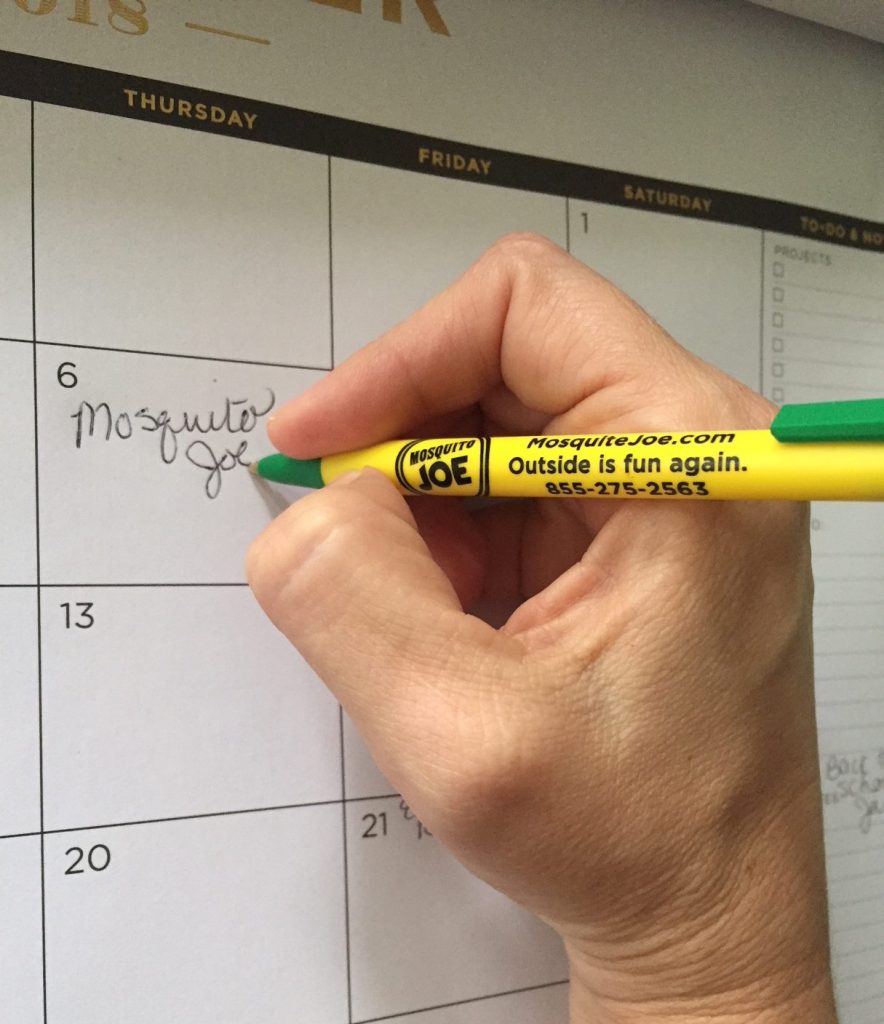 2018
THURSDAY
FRIDAY
SATURDAY
TO-DO & NO
1
PROJECTS:
6
Mosquito
Joe
MOSQUITO
JOE
MosquiteJoe.com
Outside is fun again.
855-275-2563
13
20
21